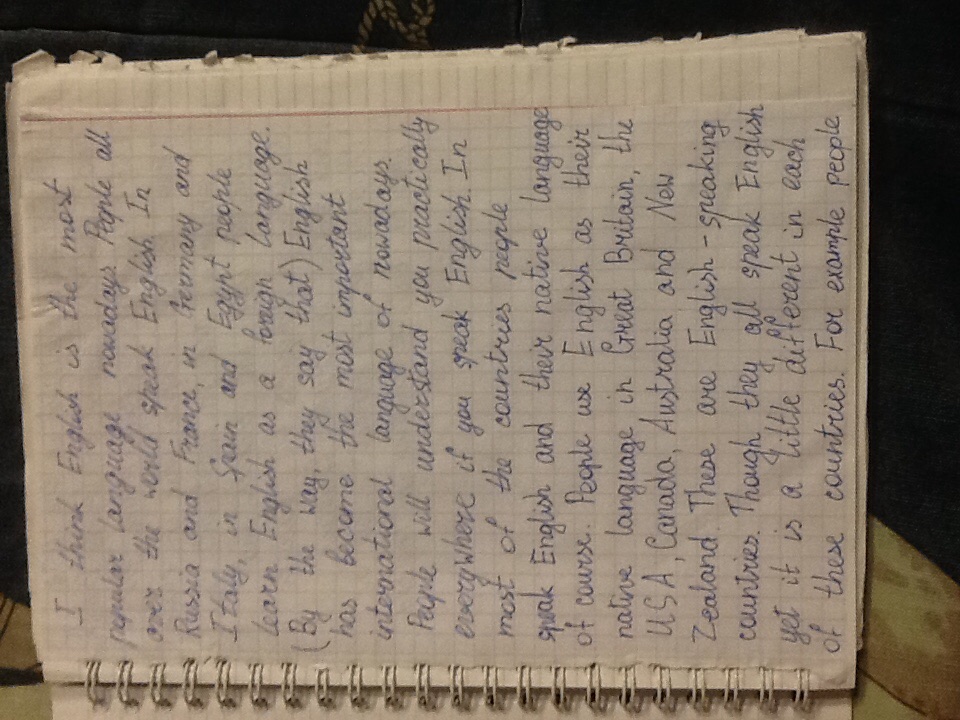 I think English is the most
popular language nowadays. People all
over the world speak English. In
Russia and France, in Germany and
Italy, in Spain and Egypt people
learn English as a foreign language.
(By the way, they say that) English
has become the most important
international language of nowadays.
People will understand you practically
everywhere if you speak English. In
most of the countries people
speak English and their native language
of course. People use English as their
native language in Great Britain, the
USA, Canada, Australia and New
Zealand. These are English-speaking
countries. Though they all speak English
yet it is a little different in each
of these countries. For example people